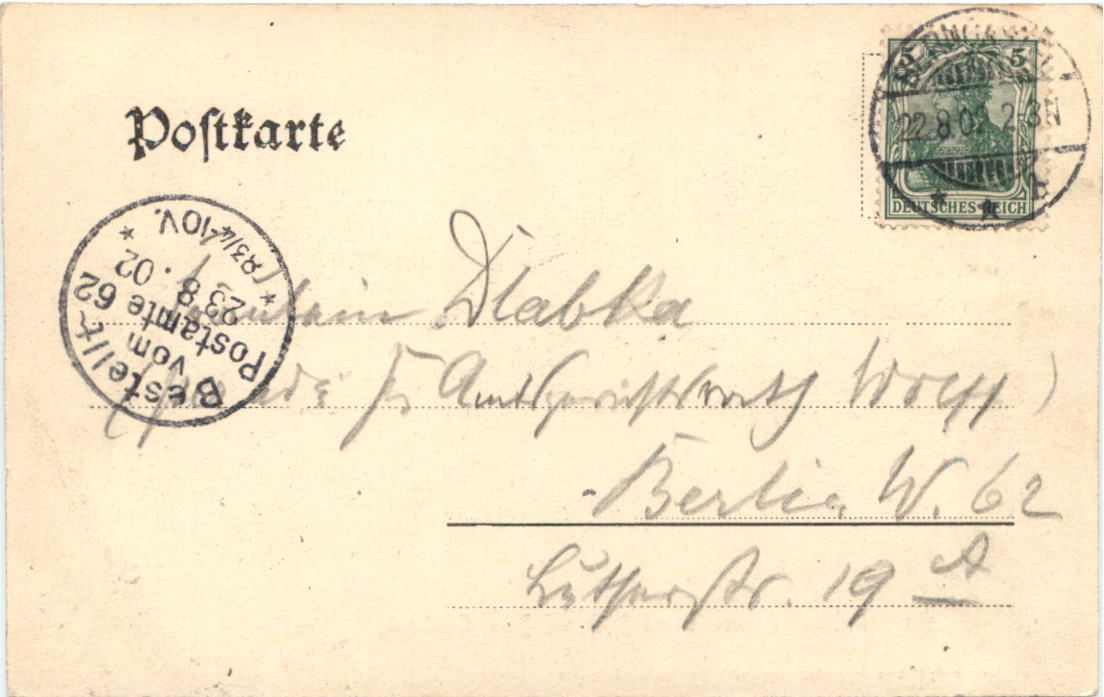 Postkarte
5 5
22.8.02 2-3N
DEUTSCHES REICH
* A
Bestellt
vom
Postamte 62
23. 8. 02
* 8 3/4-10V. *
Fräulein Dlabka
Amtsgerichtsrath Wolff )
Berlin W. 62
Lutherstr. 19 A